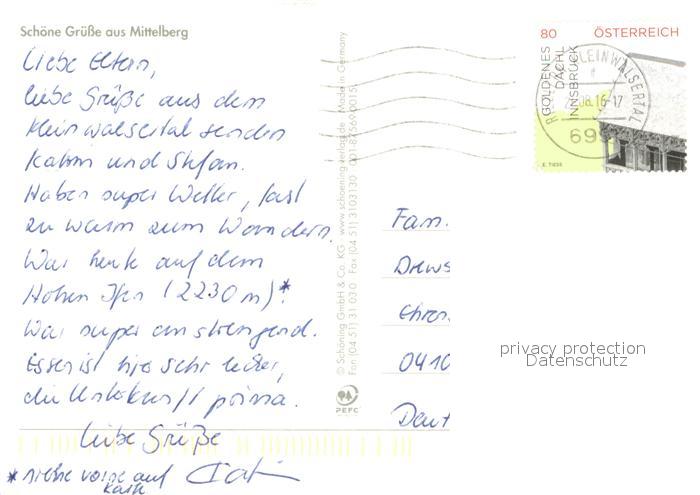 Schöne Grüße aus Mittelberg
Liebe Eltern,
liebe Grüße aus dem
Kleinwalsertal senden
Katrin und Stefan.
Haben super Wetter, fast
zu warm zum Wandern.
War heute auf dem
Hohen Ifen (2230 m)!*
War super anstrengend.
Essen ist hier sehr lecker,
die Unterkunft prima.
Liebe Grüße
* siehe vorne auf
Karte
© Schöning GmbH & Co. KG · www.schoening-verlag.de · Made in Germany
Fon (04 51) 31 03 0 Fax (04 51) 3 10 31 30
PEFC
80 ÖSTERREICH
GOLDENES
DACHL
INNSBRUCK
KLEINWALSERTAL
.16-17
699
Fam.
Drews
Ehren
0410
Deut
privacy protection
Datenschutz